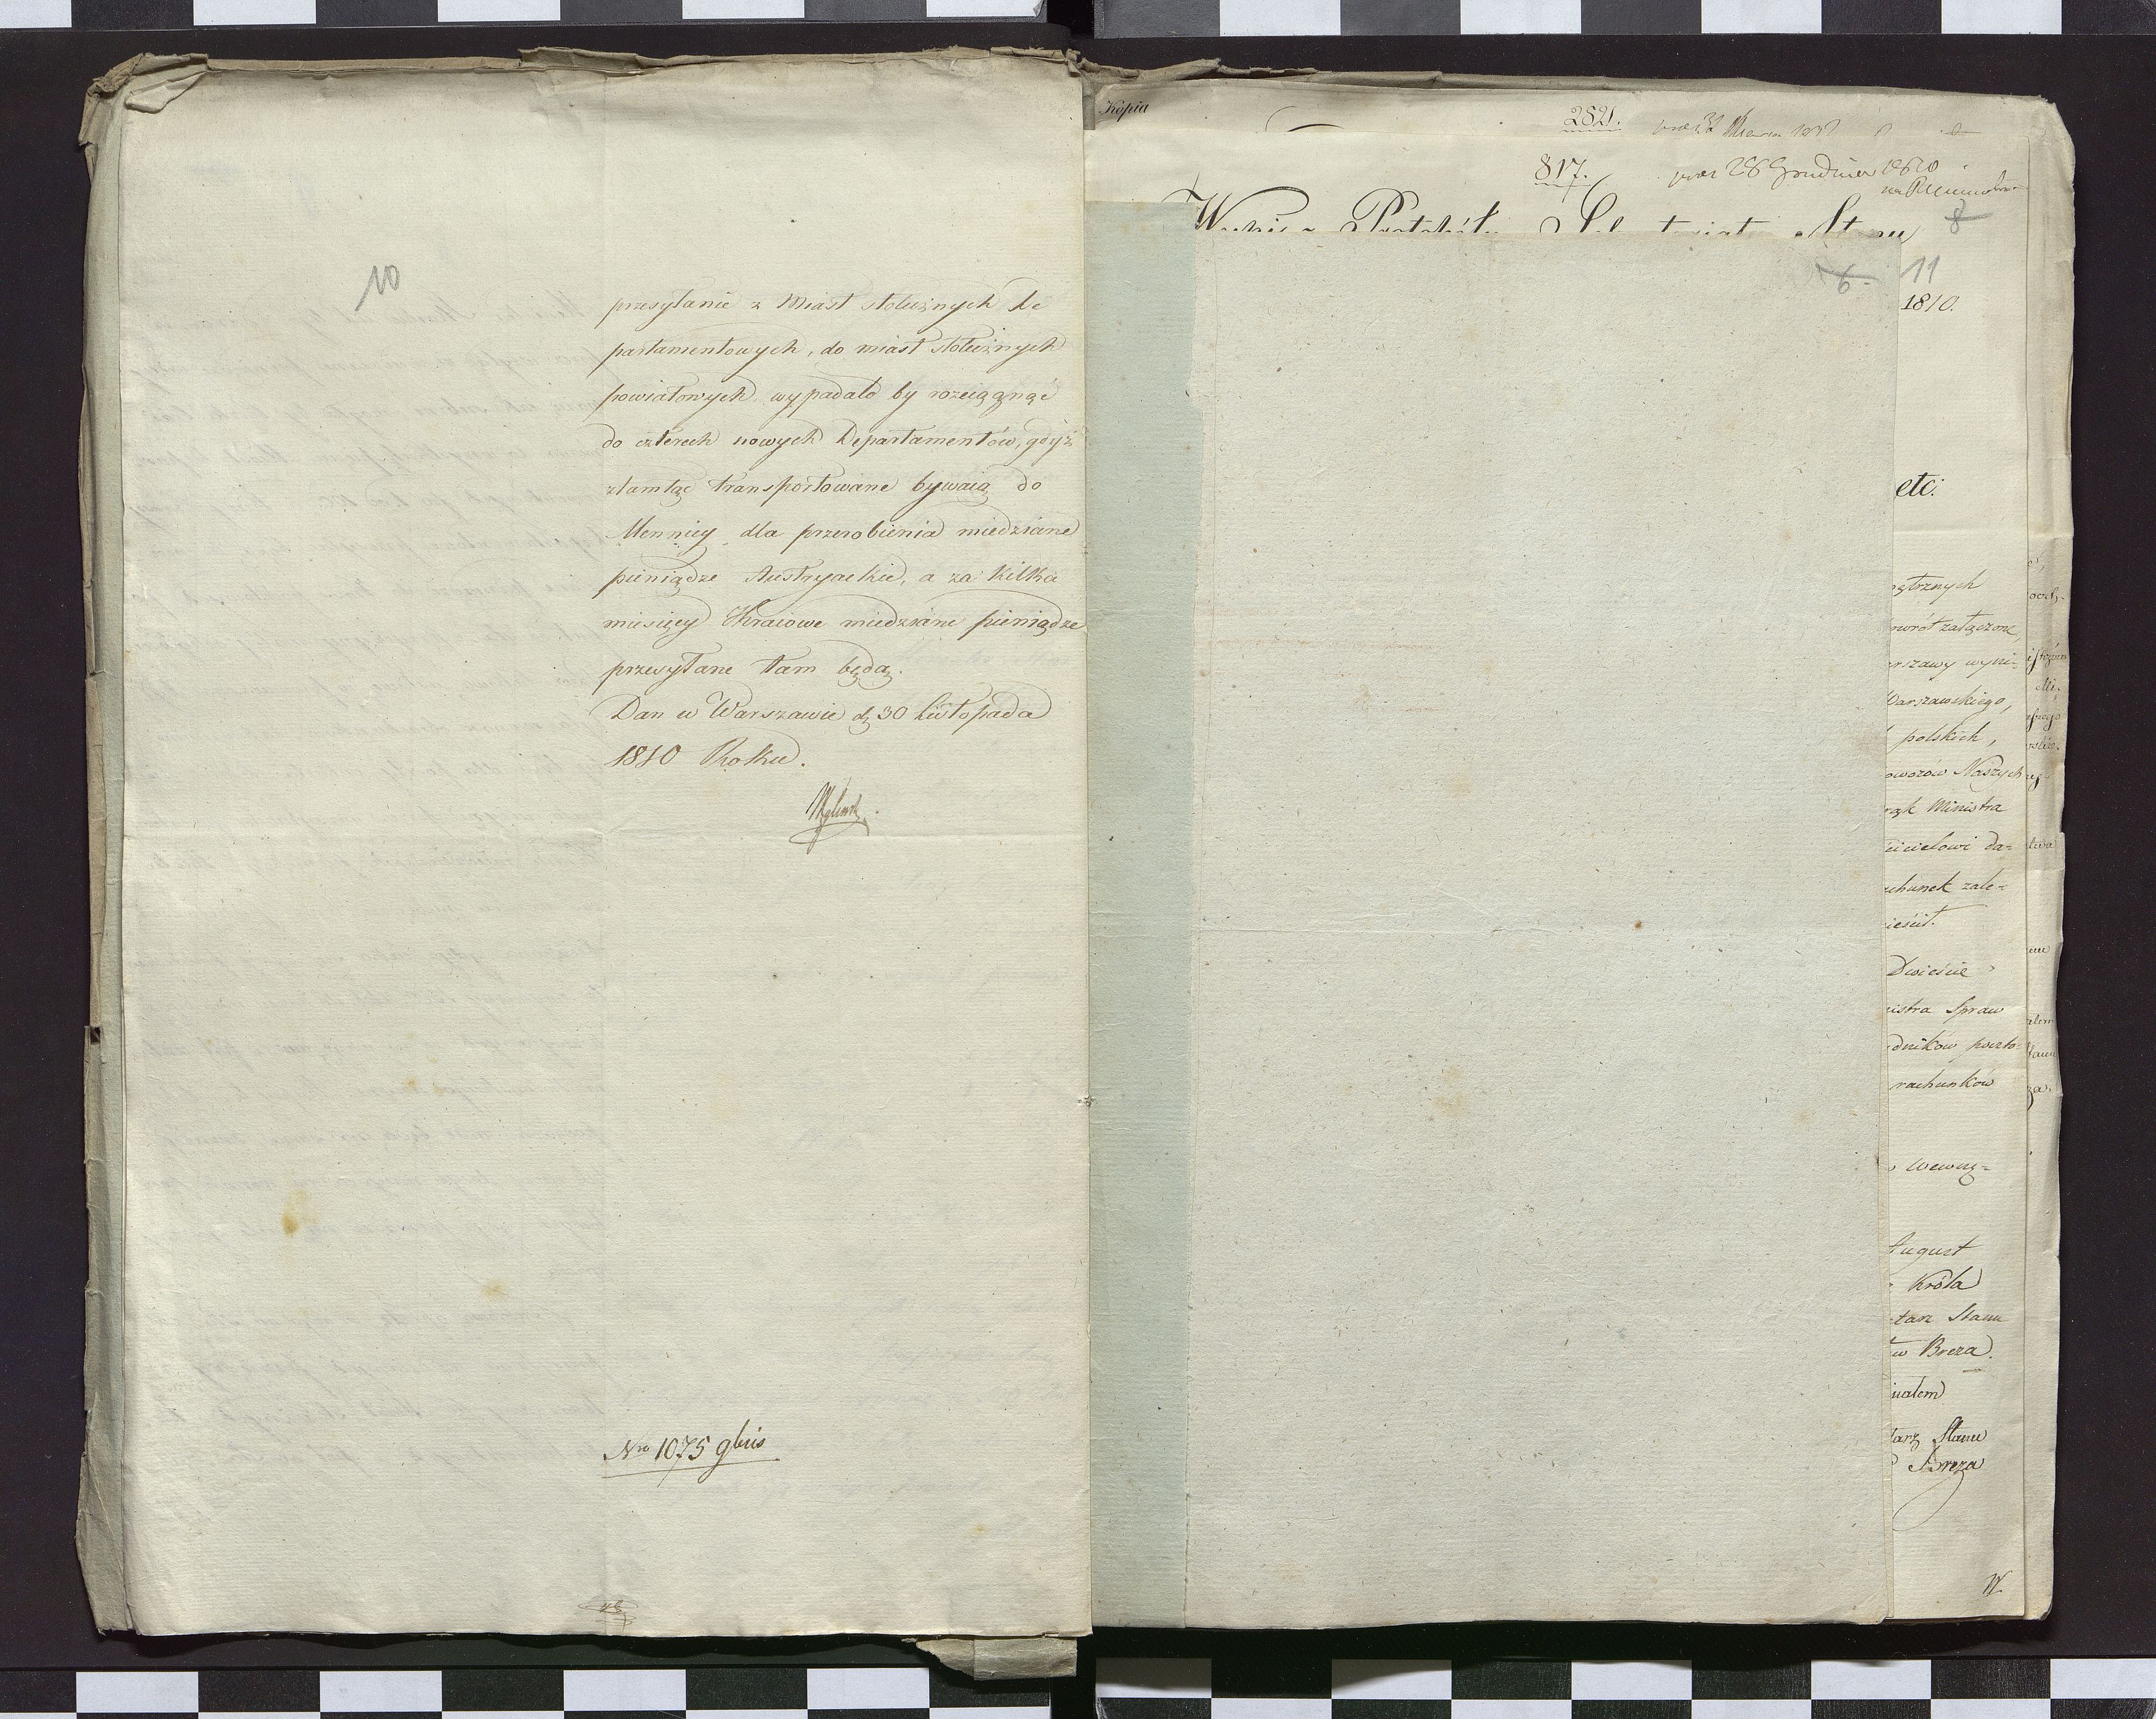 10
przesyłanie z Miast stołecznych De
partamentowych, do miast stołecznych
powiatowych wypadało by rozciągnąć
do czterech nowych Departamentów, gdyż
ztamtąd transportowane bywaią do
Mennicy dla przerobienia miedziane
pieniądze Austryackie, a za kilka
miesięcy Kraiowe miedziane pieniądze
przesyłane tam będą.
Dan w Warszawie d. 30 Listopada
1810 Roku.
Nro 1075 gbris
Kopia
282.
817. 28 Grudnia 1810
8
6. 11
1810.
etc:
ętrznych
wrót załączone,
rszawy wyni-
Warszawskiego,
polskich,
oworów Naszych
rąk Ministra
icielowi da-
chunek zale-
ieścił.
Dwieście
istra Spraw
dników poczto-
rachunków
wewnę-
August
Króla
tarz Stanu
w Breza.
inałem
tarz Stanu
Breza
W.